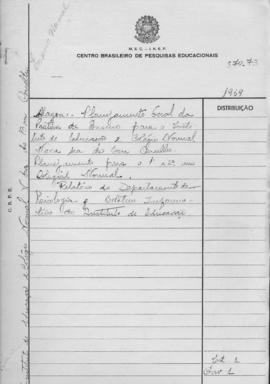 M.E.C. - I.N.E.P.
CENTRO BRASILEIRO DE PESQUISAS EDUCACIONAIS
370.73
1969
DISTRIBUIÇÃO
Alagoas - Planejamento Geral da
Prática de Ensino para o Insti
tuto de Educação e Colégio Normal
Bom Conselho
Planejamento para o 1º e 2º ano
Colegial Normal.
Relatório do Departamento de
Psicologia e Boletim Informa-
tivo do Instituto de Educação
C. B. P. E.
Instituto de Educação e Colégio Normal
Ensino Normal